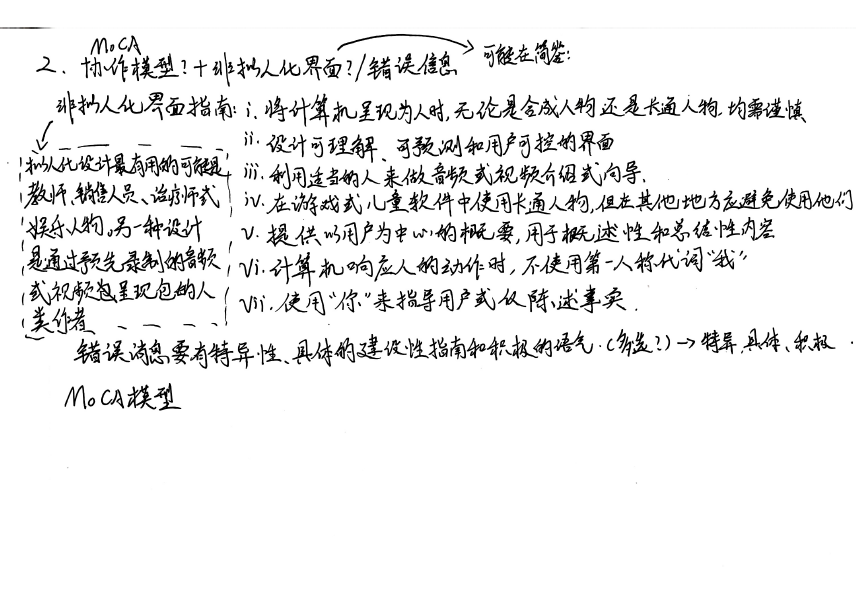 MoCA
2. 协作模型?+非拟人化界面?/错误信息 → 可能在简答:
非拟人化界面指南: i. 将计算机呈现为人时,无论是合成人物还是卡通人物,均需谨慎
ii. 设计可理解、可预测和用户可控的界面
iii. 利用适当的人来做音频或视频介绍或向导.
iv. 在游戏或儿童软件中使用卡通人物,但在其他地方应避免使用他们
v. 提供以用户为中心的概要,用于概述性和总结性内容
vi. 计算机响应人的动作时,不使用第一人称代词“我”
vii. 使用“你”来指导用户或仅陈述事实.
拟人化设计最有用的可能是
教师、销售人员、治疗师或
娱乐人物。另一种设计
是通过预先录制的音频
或视频包呈现包的人
类作者
错误消息要有特异性、具体的建设性指南和积极的语气.(多选?)→特异,具体、积极.
MoCA模型